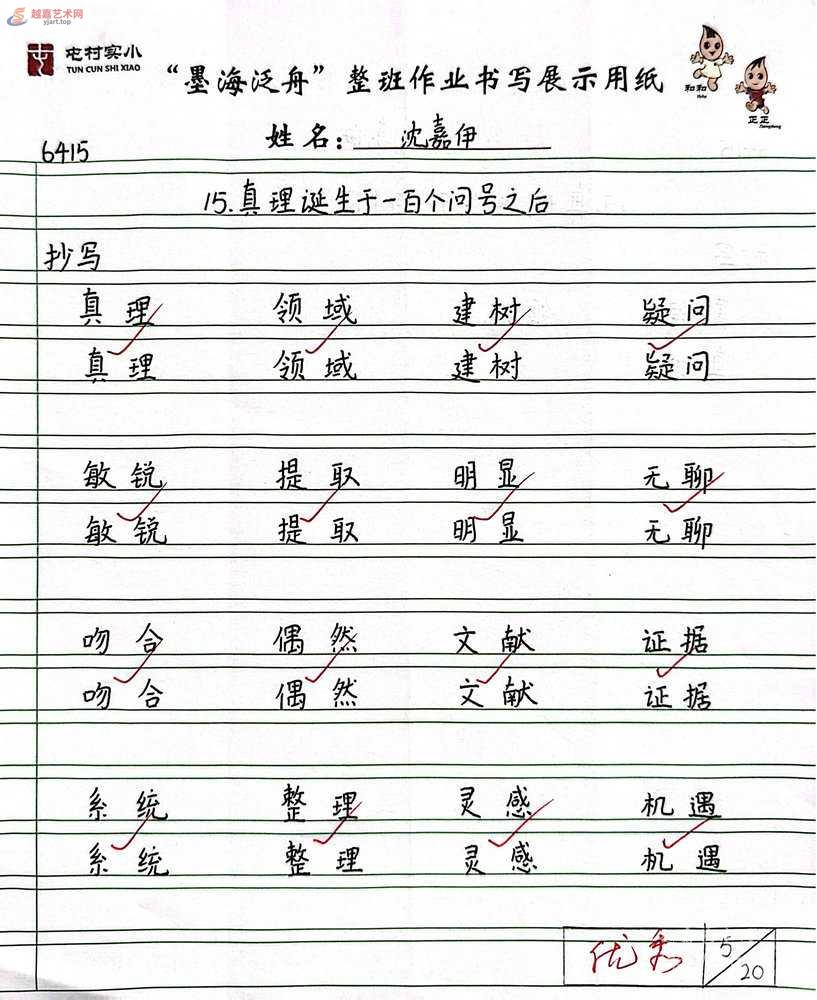 越嘉艺术网
yjart.top
屯村实小
TUN CUN SHI XIAO
“墨海泛舟”整班作业书写展示用纸
和和
Hehe
正正
Zhengzheng
6415
姓名：沈嘉伊
15.真理诞生于一百个问号之后
抄写
真理 领域 建树 疑问
真理 领域 建树 疑问
敏锐 提取 明显 无聊
敏锐 提取 明显 无聊
吻合 偶然 文献 证据
吻合 偶然 文献 证据
系统 整理 灵感 机遇
系统 整理 灵感 机遇
优秀 5/20